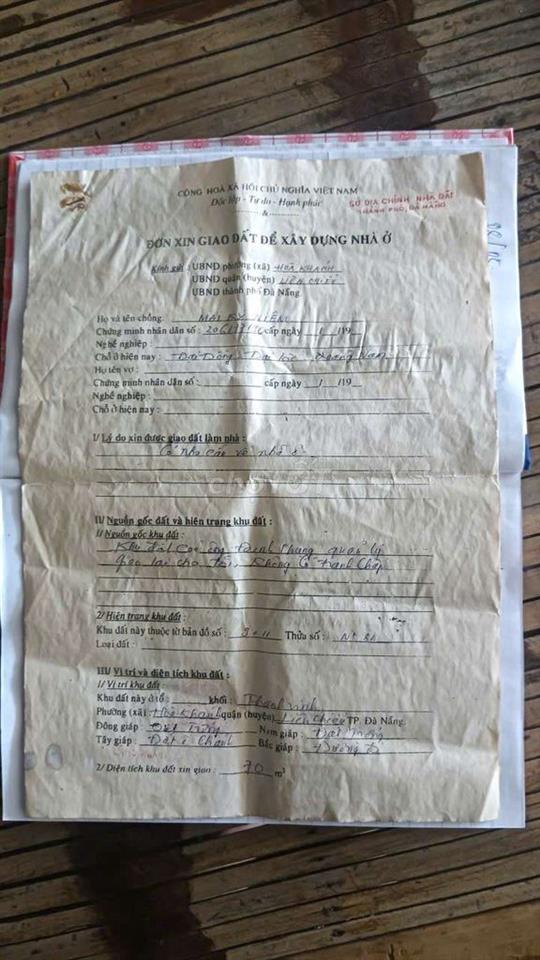 CỘNG HOÀ XÃ HỘI CHỦ NGHĨA VIỆT NAM
Độc lập - Tự do - Hạnh phúc
SỞ ĐỊA CHÍNH NHÀ ĐẤT
THÀNH PHỐ ĐÀ NẴNG
ĐƠN XIN GIAO ĐẤT ĐỂ XÂY DỰNG NHÀ Ở
Kính gửi : UBND phường (xã) HOÀ KHÁNH
UBND quận (huyện) LIÊN CHIỂU
UBND thành phố Đà Nẵng
Họ và tên chồng: MAI
Chứng minh nhân dân số : cấp ngày / /19
Nghề nghiệp :
Chỗ ở hiện nay : Đại Đồng Đại Lộc Quảng Nam
Họ tên vợ :
Chứng minh nhân dân số : cấp ngày / /19
Nghề nghiệp :
Chỗ ở hiện nay :
I/ Lý do xin được giao đất làm nhà :
Có nhu cầu về nhà ở
II/ Nguồn gốc đất và hiện trạng khu đất :
1/ Nguồn gốc đất :
Khu đất Chung quản lý
giao lại cho tôi, không có tranh chấp
2/ Hiện trạng khu đất :
Khu đất này thuộc tờ bản đồ số : Thửa số :
Loại đất :
III/ Vị trí và diện tích khu đất :
1/ Vị trí khu đất :
Khu đất này ở tổ : khối : Thanh Vinh
Phường (xã) Hoà Khánh quận (huyện) Liên Chiểu TP. Đà Nẵng.
Đông giáp : Đất trống Nam giáp : Đất trống
Tây giáp : Đất Bắc giáp : Đường
2/ Diện tích khu đất xin giao : 70 m²